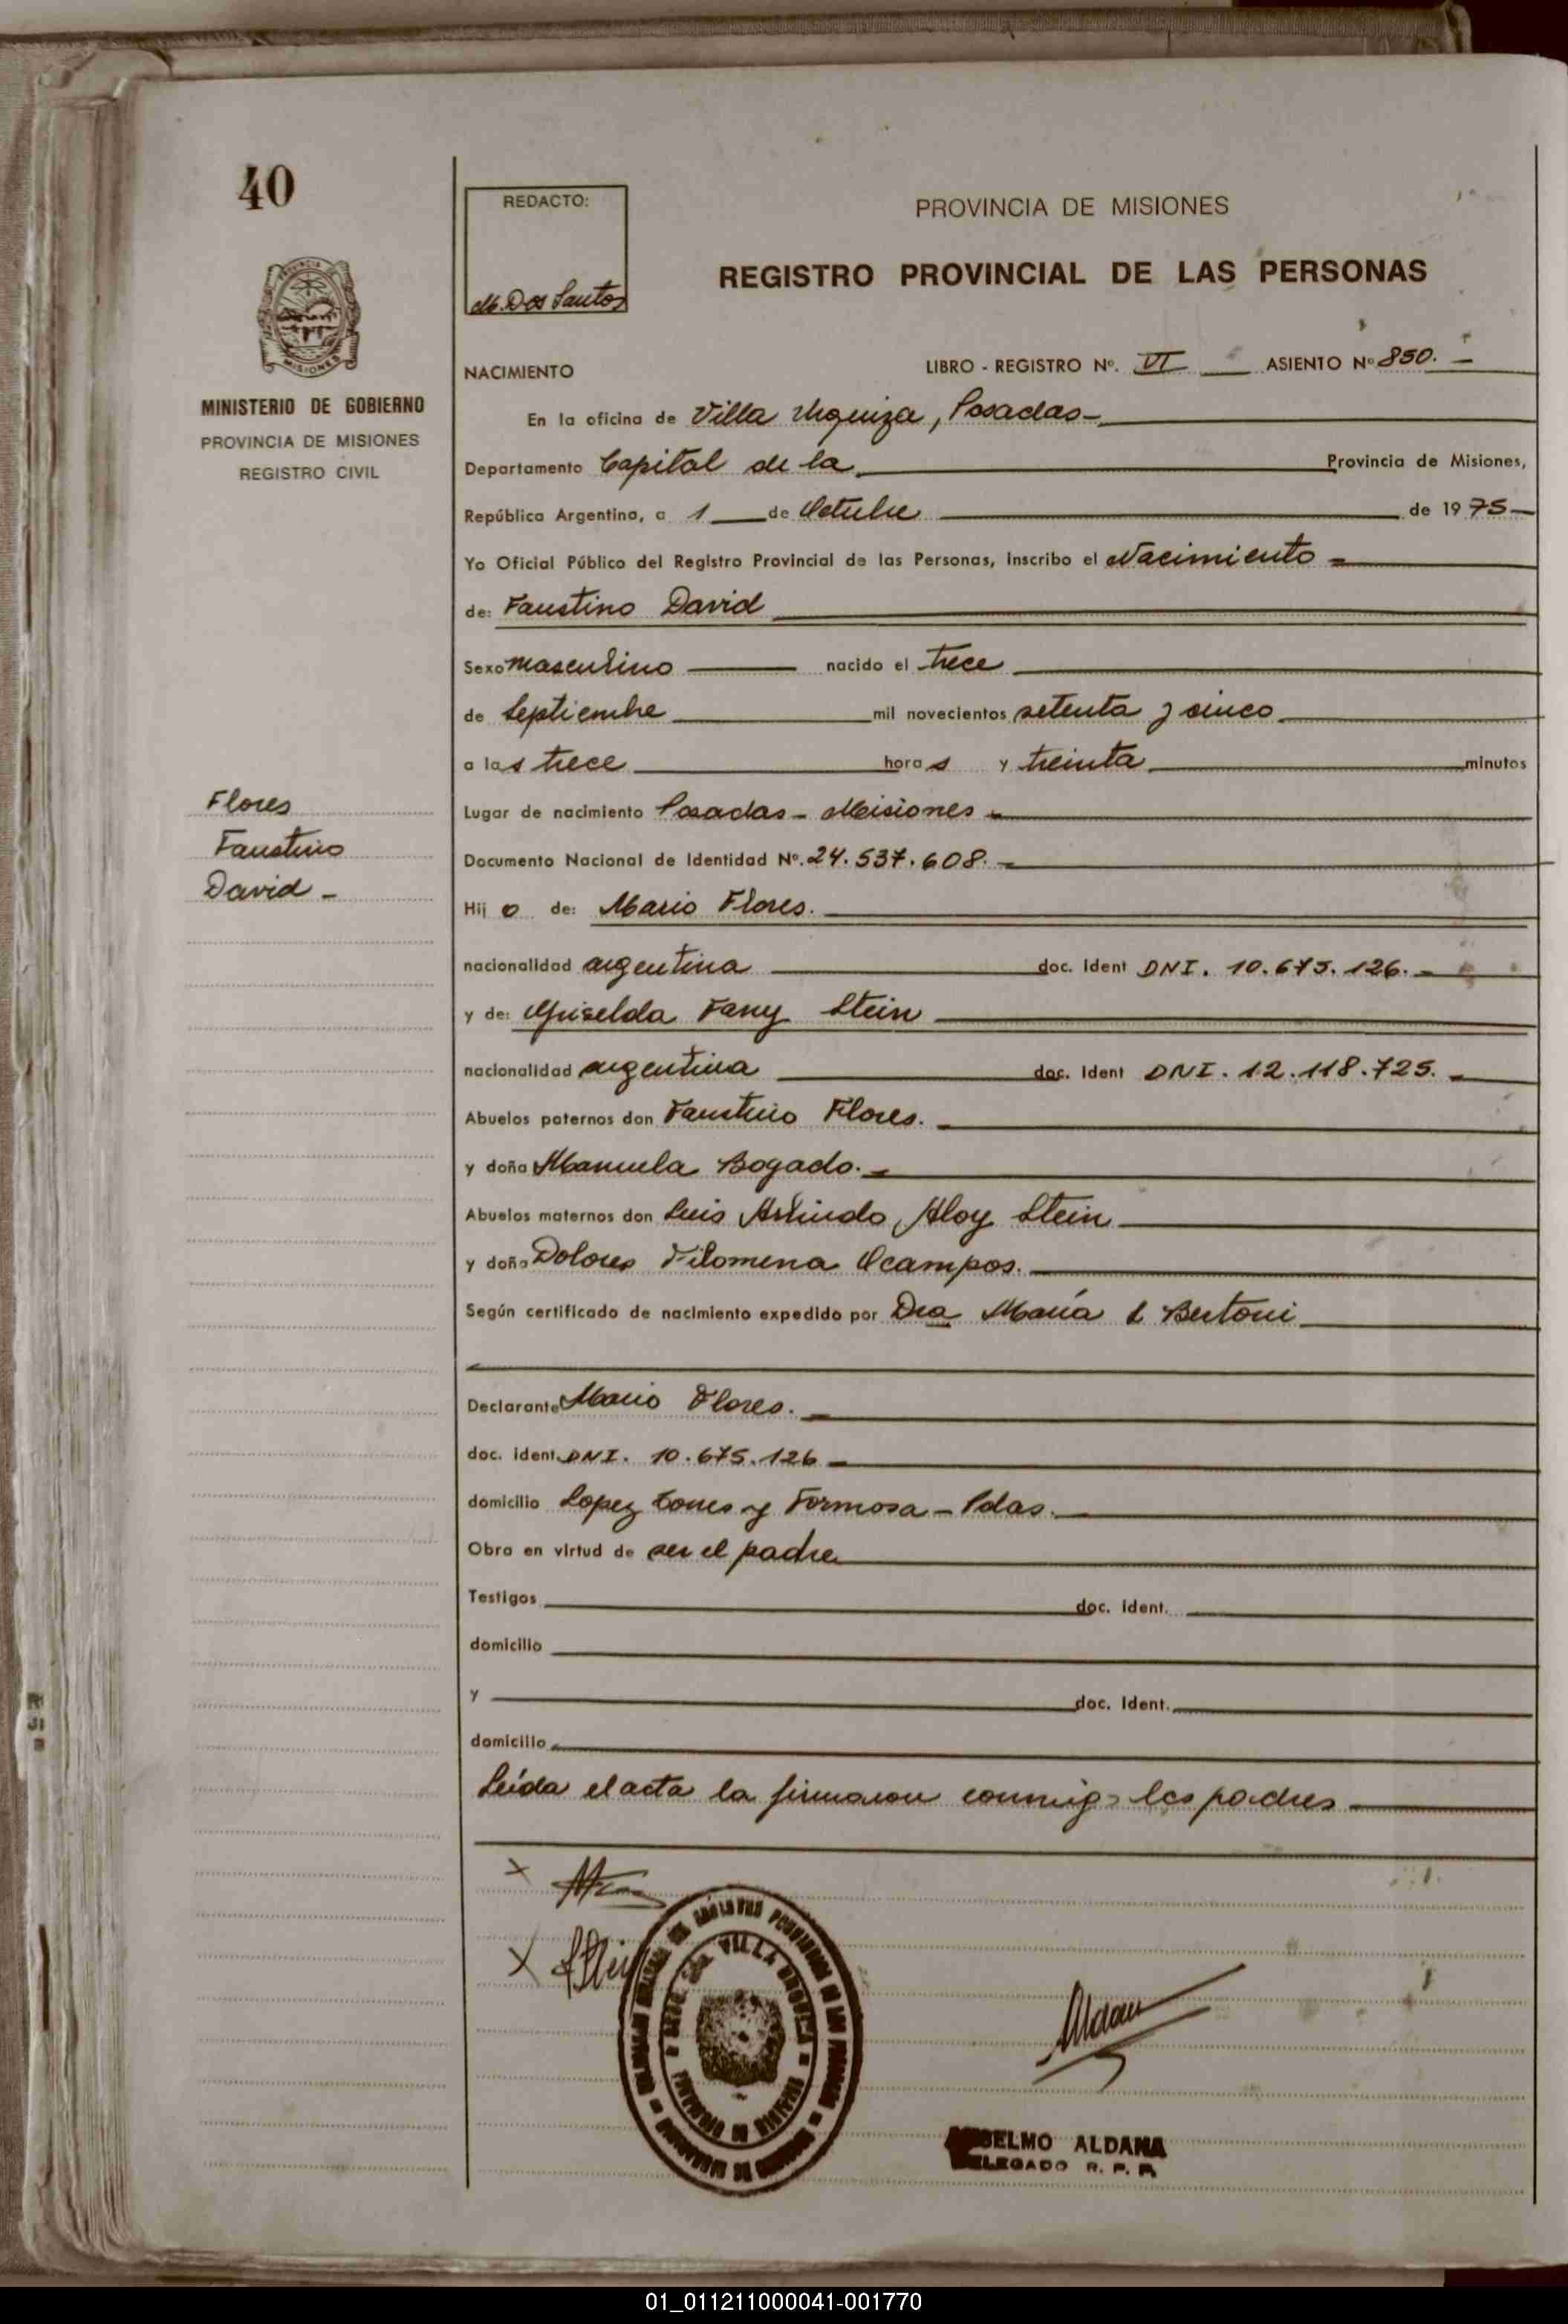 40
REDACTO:
M. Dos Santos
PROVINCIA DE MISIONES
REGISTRO PROVINCIAL DE LAS PERSONAS
MISIONES
MINISTERIO DE GOBIERNO
PROVINCIA DE MISIONES
REGISTRO CIVIL
NACIMIENTO LIBRO - REGISTRO Nº. VI ASIENTO Nº 850. -
En la oficina de Villa Urquiza, Posadas-
Departamento Capital de la Provincia de Misiones,
República Argentina, a 1 de Octubre de 1975
Yo Oficial Público del Registro Provincial de las Personas, inscribo el Nacimiento -
de: Faustino David
Sexo masculino nacido el trece
de Septiembre mil novecientos setenta y cinco
a las trece horas y treinta minutos
Flores
Faustino
David -
Lugar de nacimiento Posadas - Misiones -
Documento Nacional de Identidad Nº. 24.537.608. -
Hijo de: Mario Flores.
nacionalidad argentina doc. Ident DNI. 10.675.126. -
y de: Griselda Fany Stein
nacionalidad argentina doc. Ident DNI. 12.118.725. -
Abuelos paternos don Faustino Flores. -
y doña Manuela Bogado. -
Abuelos maternos don Luis Arlindo Aloy Stein
y doña Dolores Filomena Ocampos.
Según certificado de nacimiento expedido por Dra María L Bertoni
Declarante Mario Flores. -
doc. ident. DNI. 10.675.126 -
domicilio Lopez Torres y Formosa - Pdas.
Obra en virtud de ser el padre
Testigos doc. ident.
domicilio
y doc. Ident.
domicilio
Leída el acta la firmaron conmigo los padres
x
x
Aldana
ANSELMO ALDANA
DELEGADO R. P. P.
01_011211000041-001770